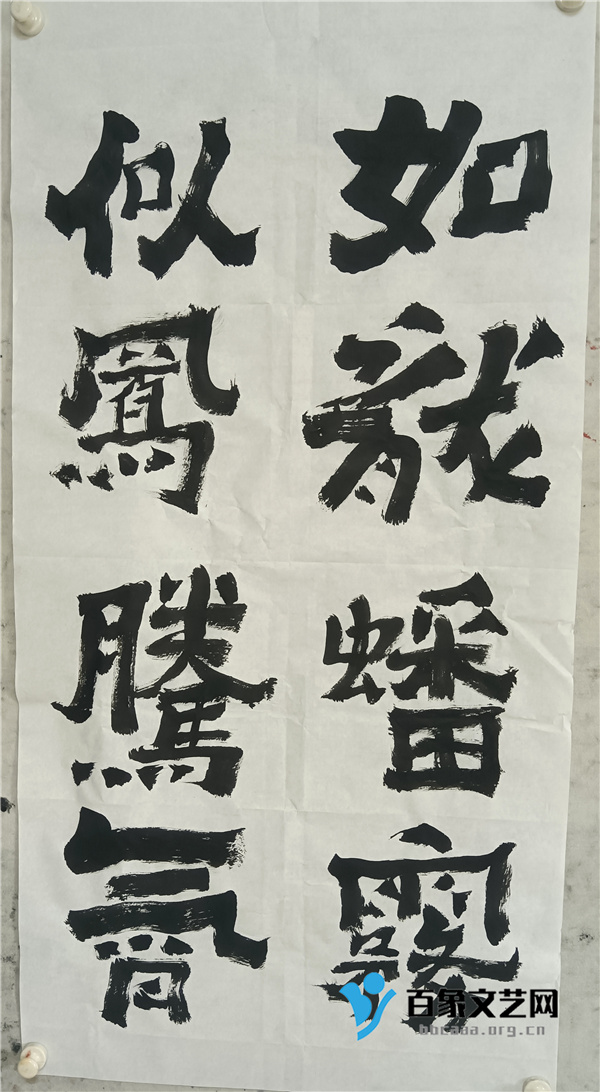 如龍蟠霧
似鳳騰
百象文艺网
bbcaaa.org.cn